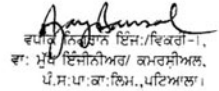 ਵਧੀਕ ਨਿਗਰਾਨ ਇੰਜ:/ਵਿਕਰੀ-1,
ਵਾ: ਮੁੱਖ ਇੰਜੀਨੀਅਰ/ ਕਮਰਸ਼ੀਅਲ,
ਪੰ.ਸ:ਪਾ:ਕਾ:ਲਿਮ.,ਪਟਿਆਲਾ।